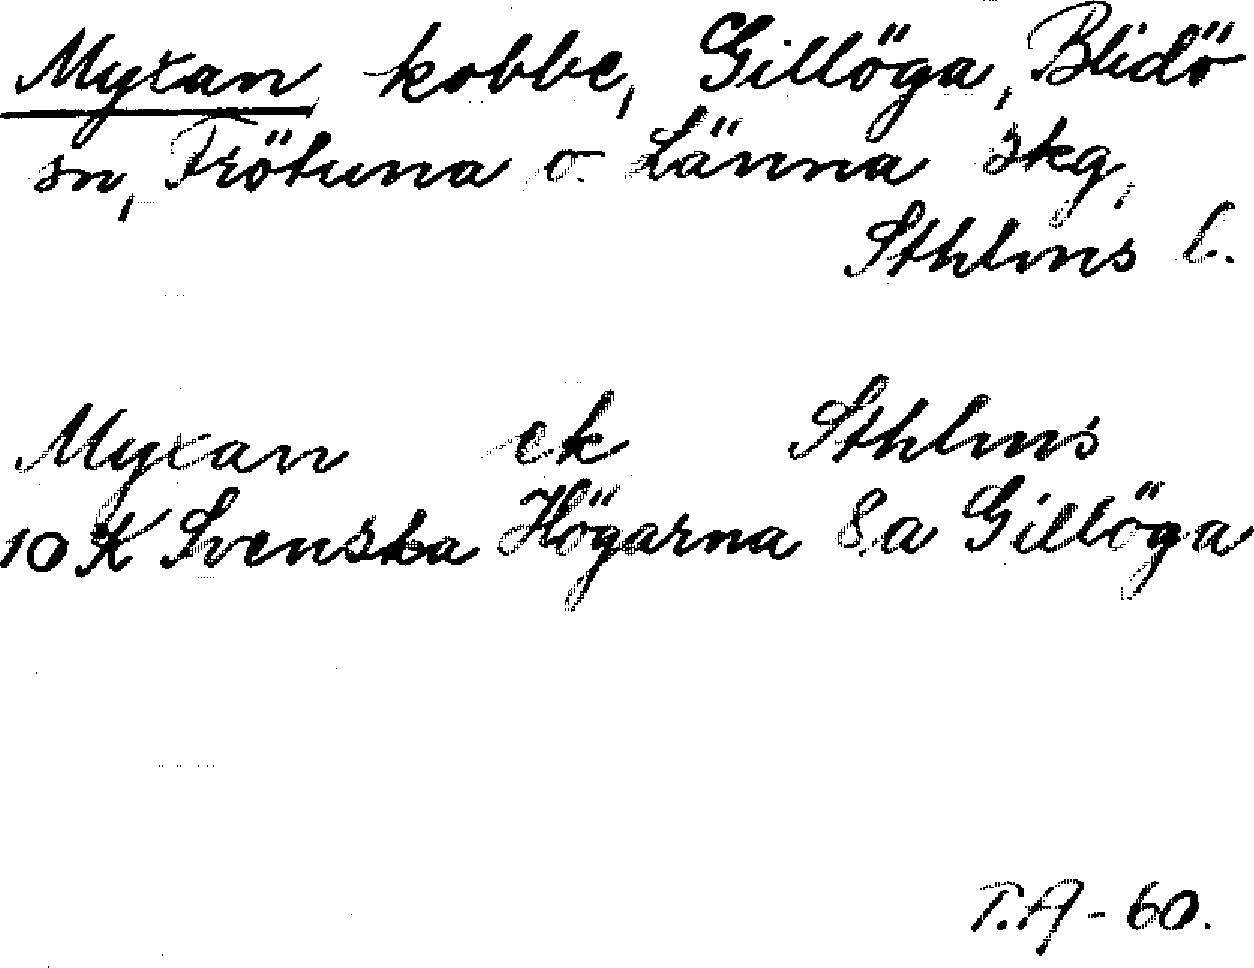 Myxan kobbe, Gillöga, Blidö
sn, Frötuna o. Länna skg,
Sthlms l.
Myxan ek Sthlms
10K Svenska Högarna 8a Gillöga
T.A - 60.